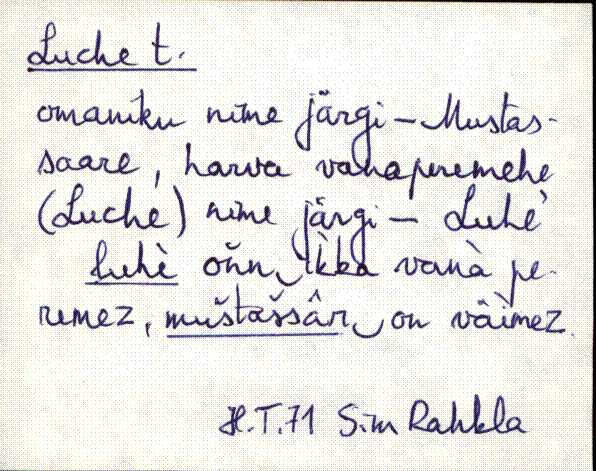 Luche t.
omaniku nime järgi – Mustas-
saare, harva vanaperemehe
(Luche) nime järgi – Luhe
luhè oǹn ikka vanà pe-
remez, muštaššâr on väimez.
H.T.71 Sim Rahkla